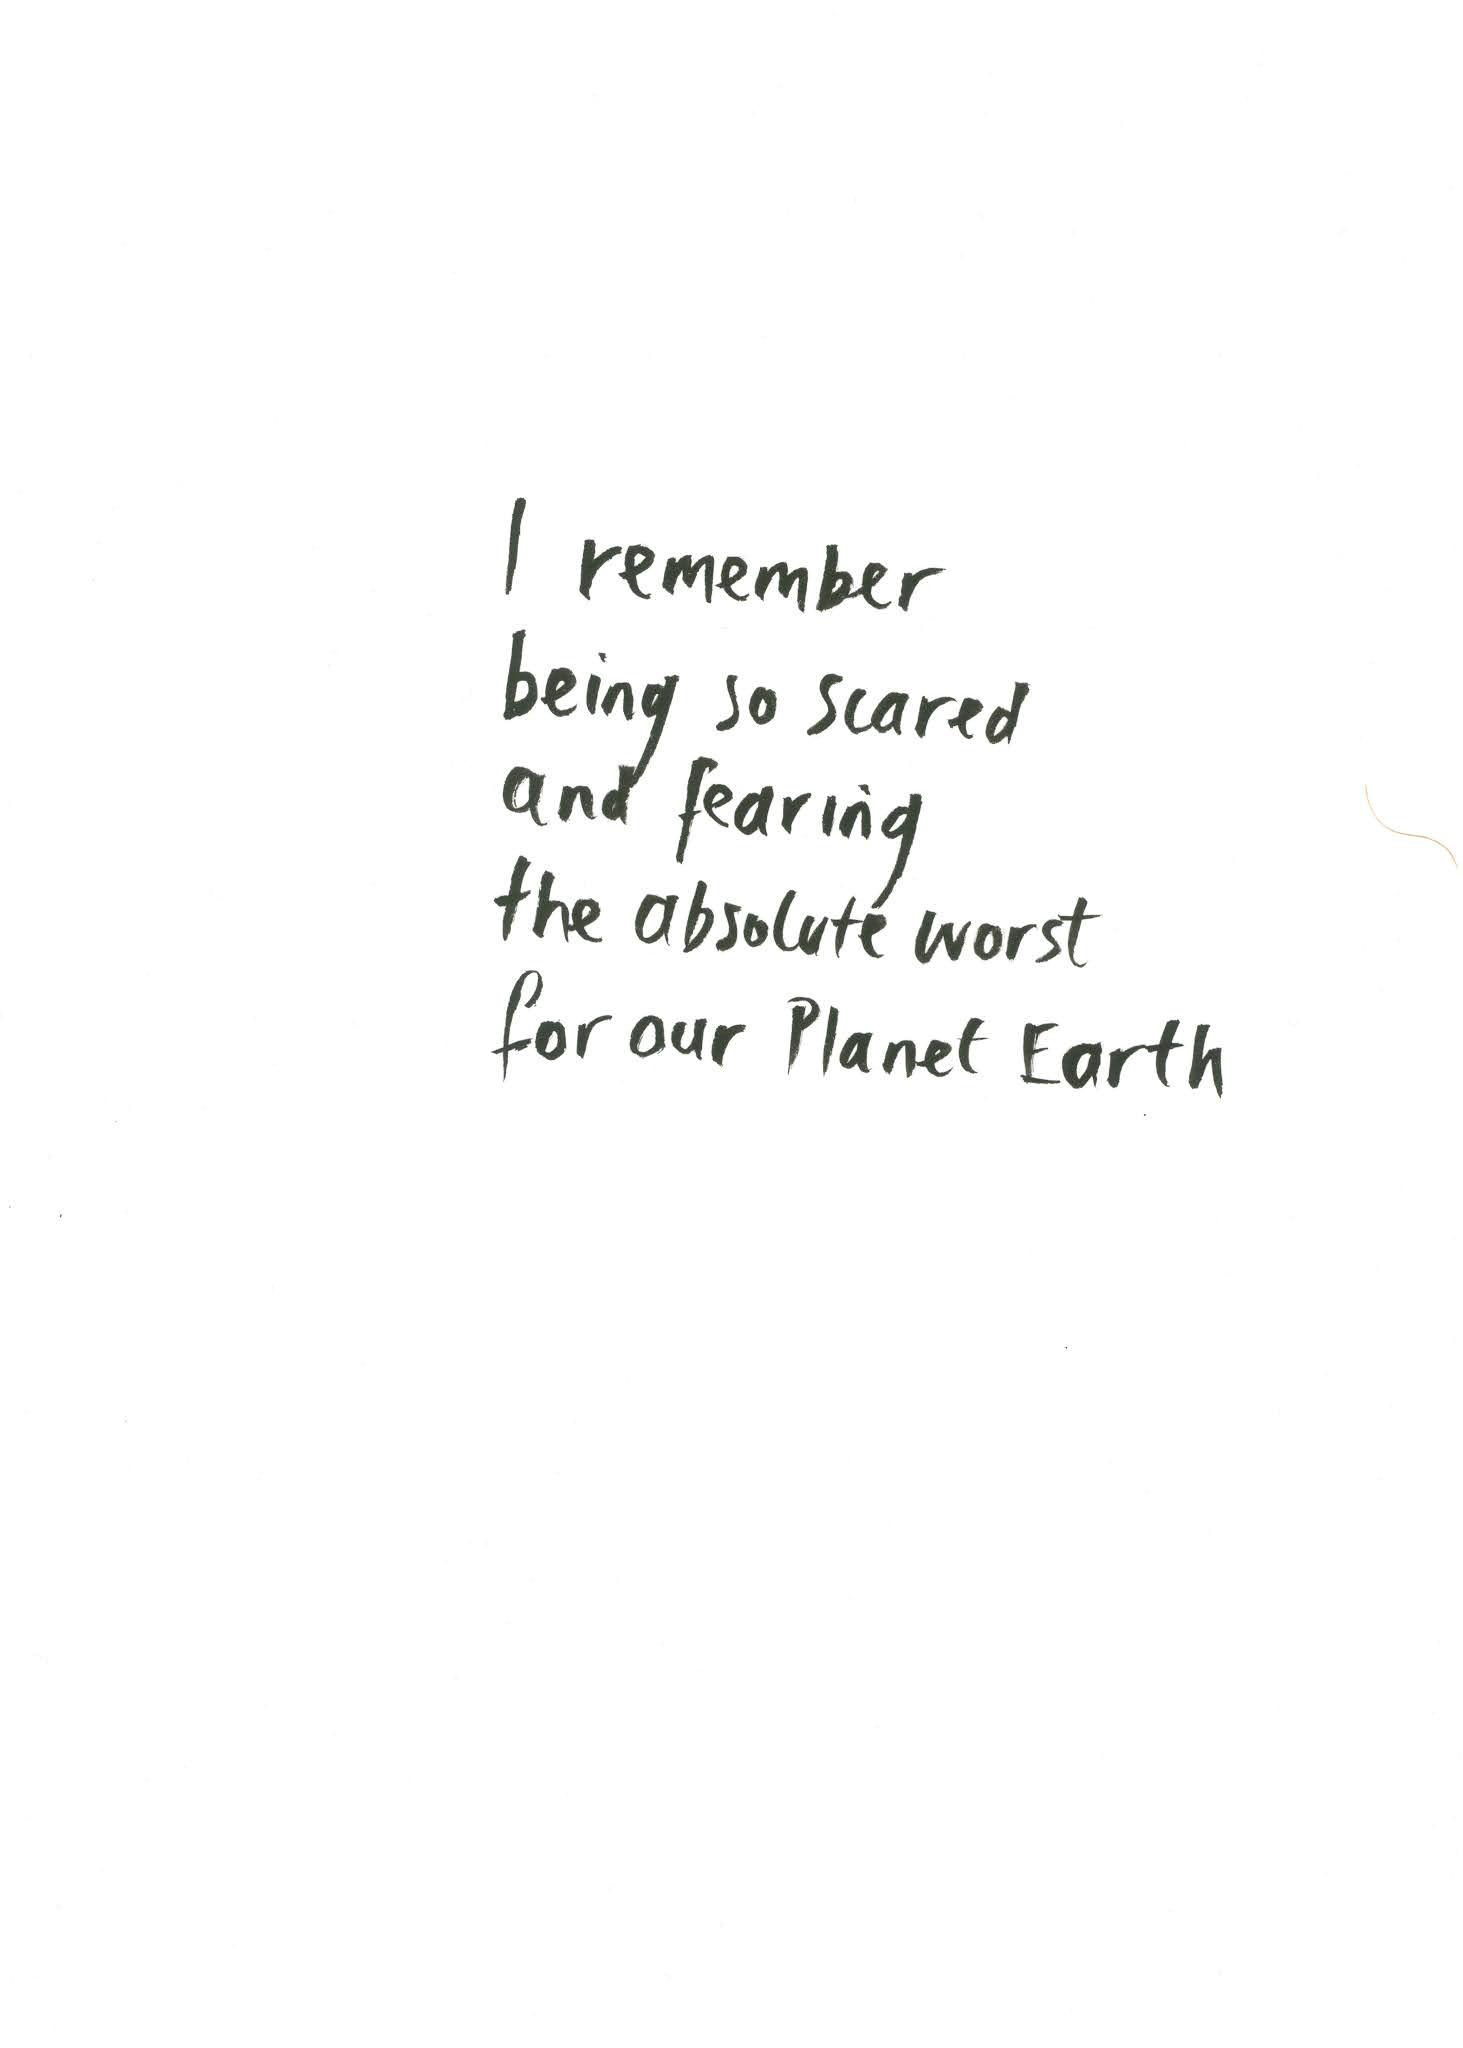 I remember
being so scared
and fearing
the absolute worst
for our Planet Earth